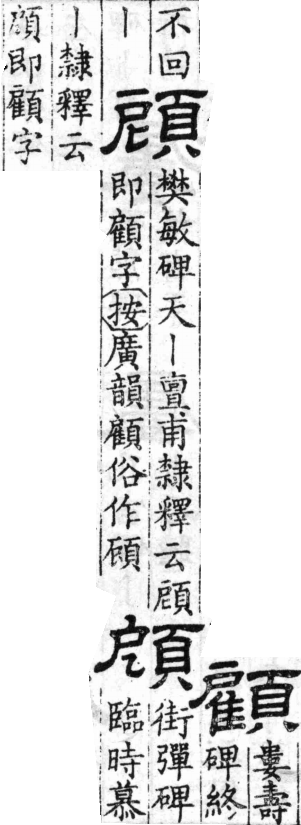 顧
婁壽
碑終
不回
丨
頋
樊敏碑天丨亶甫隸釋云頋
即顧字按廣韻顧俗作頋
頋
街彈碑
臨時慕
丨隸釋云
頋即顧字